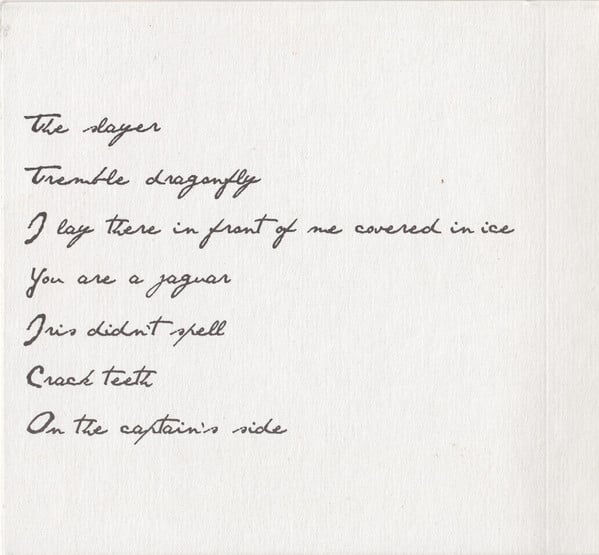 The slayer
Tremble dragonfly
I lay there in front of me covered in ice
You are a jaguar
Iris didn't spell
Crack teeth
On the captain's side